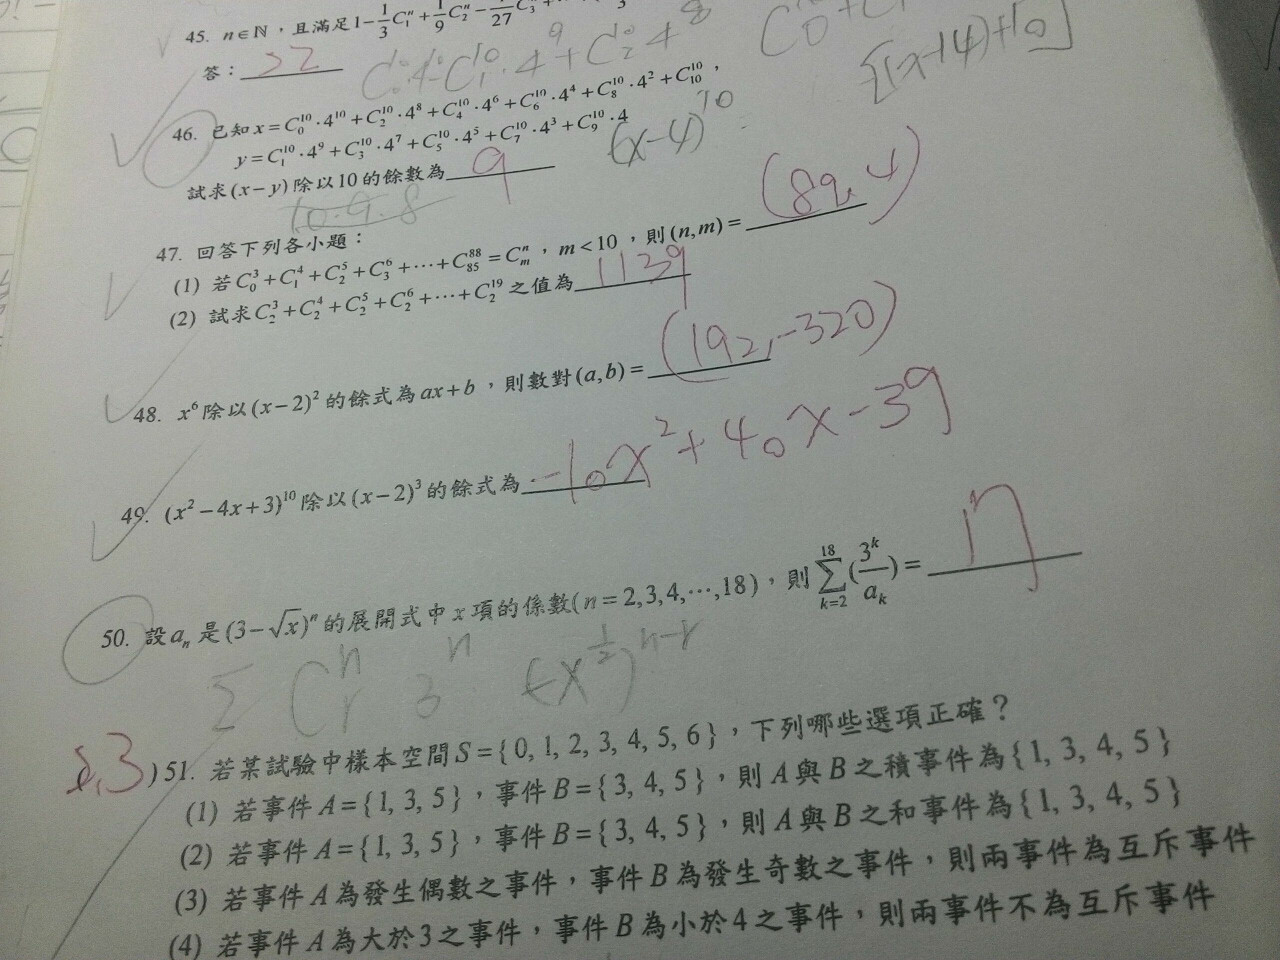 45. n∈ℕ，且滿足1−1/3C₁ⁿ+1/9C₂ⁿ−1/27C₃ⁿ
答：22
C₀¹⁰·4¹⁰−C₁¹⁰·4⁹+C₂¹⁰4⁸
[(x-14)+10]
46. 已知x=C₀¹⁰·4¹⁰+C₂¹⁰·4⁸+C₄¹⁰·4⁶+C₆¹⁰·4⁴+C₈¹⁰·4²+C₁₀¹⁰，
y=C₁¹⁰·4⁹+C₃¹⁰·4⁷+C₅¹⁰·4⁵+C₇¹⁰·4³+C₉¹⁰·4
(x-4)¹⁰
試求(x−y)除以10的餘數為 9
10·9·8
47. 回答下列各小題：
(1) 若C₀³+C₁⁴+C₂⁵+C₃⁶+⋯+C₈₅⁸⁸=Cₘⁿ，m<10，則(n,m)= (89,4)
(2) 試求C₂³+C₂⁴+C₂⁵+C₂⁶+⋯+C₂¹⁹之值為 1139
48. x⁶除以(x−2)²的餘式為ax+b，則數對(a,b)= (192,-320)
49. (x²−4x+3)¹⁰除以(x−2)³的餘式為 -10x²+40x-39
50. 設aₙ是(3−√x)ⁿ的展開式中x項的係數(n=2,3,4,⋯,18)，則∑_{k=2}^{18}(3ᵏ/aₖ)= 17
Σ Cᵣⁿ 3ⁿ (-x^{1/2})^{n-r}
2,3)51. 若某試驗中樣本空間S={0, 1, 2, 3, 4, 5, 6}，下列哪些選項正確？
(1) 若事件A={1, 3, 5}，事件B={3, 4, 5}，則A與B之積事件為{1, 3, 4, 5}
(2) 若事件A={1, 3, 5}，事件B={3, 4, 5}，則A與B之和事件為{1, 3, 4, 5}
(3) 若事件A為發生偶數之事件，事件B為發生奇數之事件，則兩事件為互斥事件
(4) 若事件A為大於3之事件，事件B為小於4之事件，則兩事件不為互斥事件